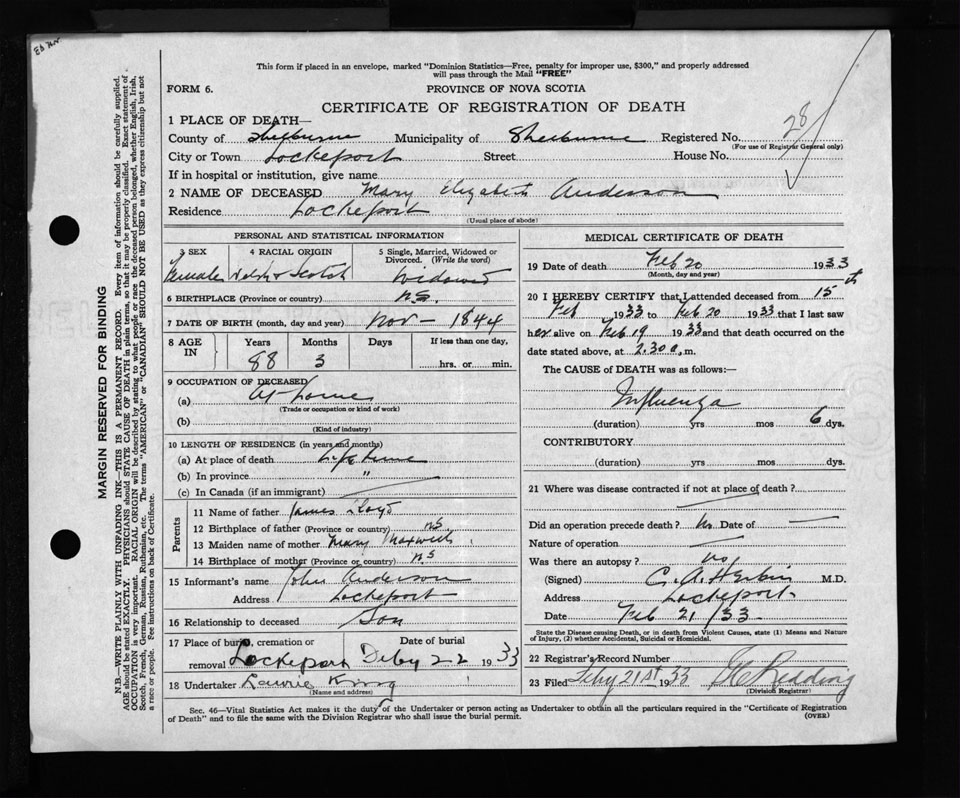 This form if placed in an envelope, marked "Dominion Statistics—Free, penalty for improper use, $300," and properly addressed
will pass through the Mail "FREE"
FORM 6.
PROVINCE OF NOVA SCOTIA
CERTIFICATE OF REGISTRATION OF DEATH
1 PLACE OF DEATH—
County of Shelburne Municipality of Shelburne Registered No. 28
(For use of Registrar General only)
City or Town Lockeport Street House No.
If in hospital or institution, give name
2 NAME OF DECEASED Mary Elizabeth Anderson
Residence Lockeport
(Usual place of abode)
MARGIN RESERVED FOR BINDING
N.B.—WRITE PLAINLY WITH UNFADING INK—THIS IS A PERMANENT RECORD. Every item of information should be carefully supplied.
AGE should be stated EXACTLY. PHYSICIANS should STATE CAUSE OF DEATH in plain terms, so that it may be properly classified. Exact statement of
OCCUPATION is very important. RACIAL ORIGIN will be described by stating to what people or race the deceased person belonged, whether English, Irish,
Scotch, French, German, Russian, Ruthenian, etc. The terms "AMERICAN" or "CANADIAN" SHOULD NOT BE USED as they express citizenship but not
a race or people. See instructions on back of Certificate.
PERSONAL AND STATISTICAL INFORMATION
3 SEX
Female
4 RACIAL ORIGIN
Welsh & Scotch
5 Single, Married, Widowed or
Divorced. (Write the word)
Widowed
6 BIRTHPLACE (Province or country) N.S.
7 DATE OF BIRTH (month, day and year) Nov - 1844
8 AGE IN
Years Months Days If less than one day,
88 3 hrs. or min.
9 OCCUPATION OF DECEASED
(a) At home
(Trade or occupation or kind of work)
(b)
(Kind of industry)
10 LENGTH OF RESIDENCE (in years and months)
(a) At place of death Life time
(b) In province "
(c) In Canada (if an immigrant)
Parents
11 Name of father James Lloyd
12 Birthplace of father (Province or country) NS
13 Maiden name of mother Mary Maxwell
14 Birthplace of mother (Province or country) N.S
15 Informant's name John Anderson
Address Lockeport
16 Relationship to deceased Son
17 Place of burial, cremation or
removal Lockeport
Date of burial
22 1933
18 Undertaker Laurie King
(Name and address)
MEDICAL CERTIFICATE OF DEATH
19 Date of death Feb 20 1933
(Month, day and year)
20 I HEREBY CERTIFY that I attended deceased from 15th
Feb 1933 to Feb 20 1933 that I last saw
her alive on Feb 19 1933 and that death occurred on the
date stated above, at 2.30 a. m.
The CAUSE of DEATH was as follows:—
Influenza
(duration) yrs mos 6 dys.
CONTRIBUTORY
(duration) yrs mos dys.
21 Where was disease contracted if not at place of death?
Did an operation precede death? No Date of
Nature of operation
Was there an autopsy? No
(Signed) C. A. Herbin M.D.
Address Lockeport
Date Feb 21/33
State the Disease causing Death, or in death from Violent Causes, state (1) Means and Nature
of Injury, (2) whether Accidental, Suicidal or Homicidal.
22 Registrar's Record Number
23 Filed Feby 21st 1933 Redding
(Division Registrar)
Sec. 46—Vital Statistics Act makes it the duty of the Undertaker or person acting as Undertaker to obtain all the particulars required in the "Certificate of Registration
of Death" and to file the same with the Division Registrar who shall issue the burial permit.
(OVER)